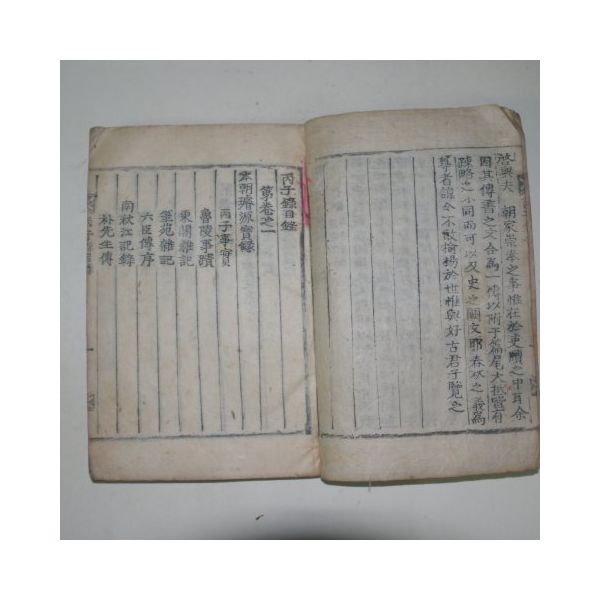 啓與夫 朝家崇奉之事惟在於吏牘之中耳余
因其傳書之文合爲一博以附于篇尾大抵豈有
疎略之小同而可以及史之闕文耶春秋之義爲
尊者諱今不敢揄揚於世惟與好古君子覽之
丙子錄目錄
第卷之一
本朝璿源寶錄
丙子事實
魯陵事蹟
東閣雜記
筆苑雜記
六臣傳序
南秋江記錄
朴先生傳